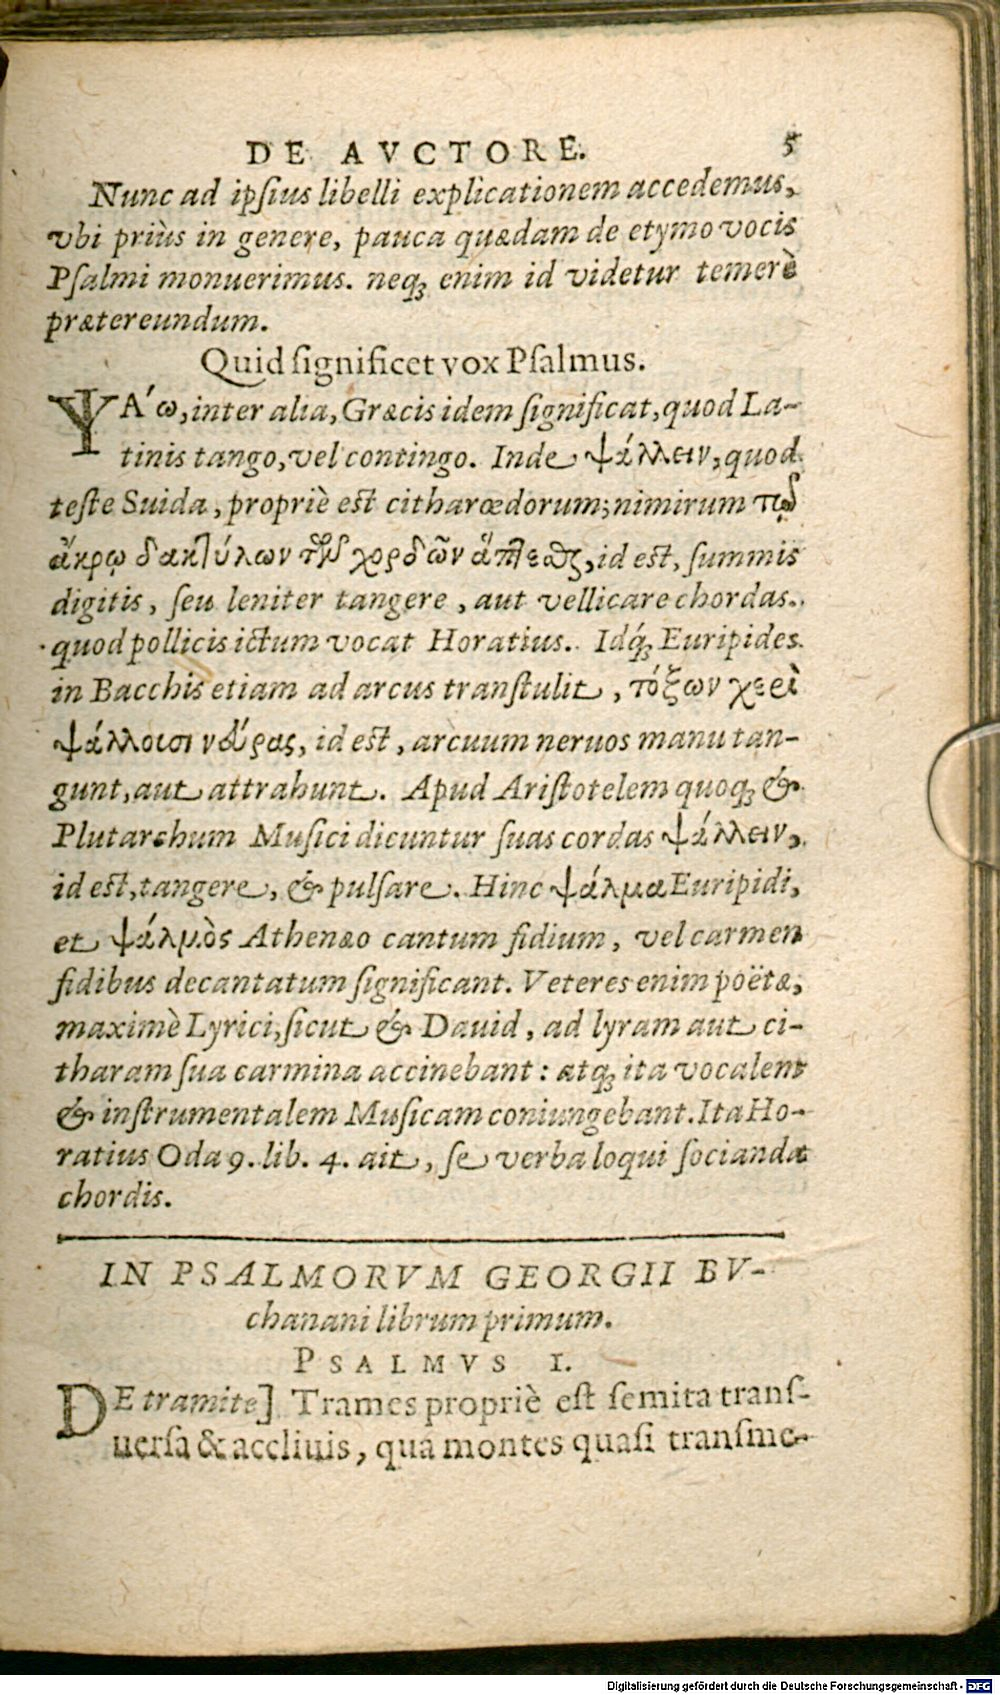 DE AVCTORE. 5
Nunc ad ipſius libelli explicationem accedemus,
vbi priùs in genere, pauca quædam de etymo vocis
Pſalmi monuerimus. neqꝫ enim id videtur temerè
prætereundum.
Quid significet vox Pſalmus.
ΨΑ΄ω, inter alia, Græcis idem ſignificat, quod La-
tinis tango, vel contingo. Inde ψάλλειν, quod
teſte Suida, propriè est citharœdorum; nimirum τῷ
ἄκρῳ δακτύλων τῶν χορδῶν ἅπτεσθαι, id est, ſummis
digitis, ſeu leniter tangere, aut vellicare chordas.
quod pollicis ictum vocat Horatius. Idqꝫ́ Euripides
in Bacchis etiam ad arcus tranſtulit, τόξων χερὶ
ψάλλουσι νευρας, id est, arcuum neruos manu tan-
gunt, aut attrahunt. Apud Ariſtotelem quoqꝫ &
Plutarchum Muſici dicuntur ſuas cordas ψάλλειν,
id est, tangere, & pulſare. Hinc ψάλμα Euripidi,
et ψάλμὸς Athenæo cantum fidium, vel carmen
fidibus decantatum ſignificant. Veteres enim poëtæ,
maximè Lyrici, ſicut & Dauid, ad lyram aut ci-
tharam ſua carmina accinebant: atqꝫ ita vocalem
& inſtrumentalem Muſicam coniungebant. Ita Ho-
ratius Oda 9. lib. 4. ait, ſe verba loqui ſocianda
chordis.
IN PSALMORVM GEORGII BV-
chanani librum primum.
PSALMVS I.
DE tramite] Trames propriè est ſemita tranſ-
uerſa & accliuis, qua montes quaſi tranſme-
Digitalisierung gefördert durch die Deutsche Forschungsgemeinschaft - DFG